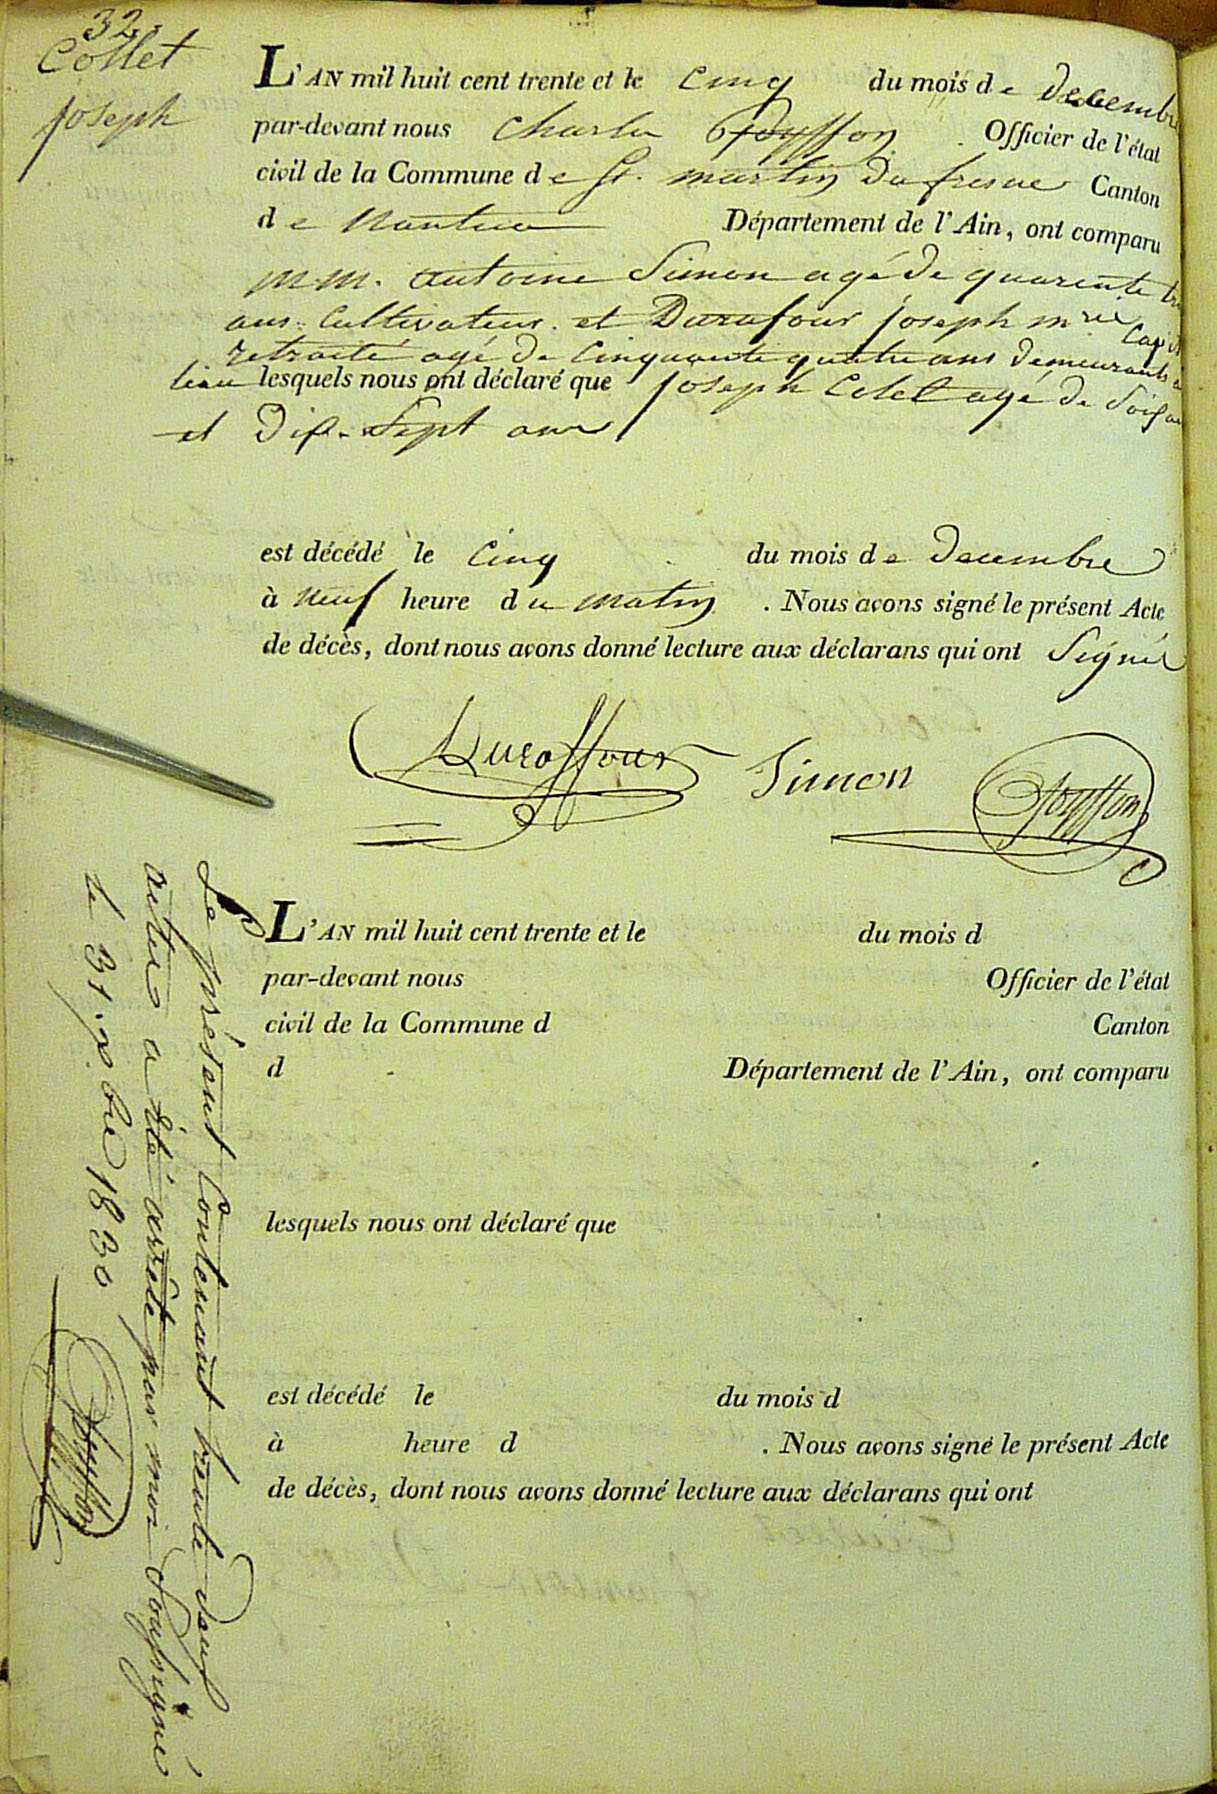 32.
Collet
joseph
L'AN mil huit cent trente et le cinq du mois de decembre
par-devant nous Charles Officier de l'état
civil de la Commune de St. martin du fresne Canton
de Nantua Département de l'Ain, ont comparu
MM. antoine Simon agé de quarente
ans cultivateur et Durafour joseph
retraité agé de cinquante quatre ans demeurants
lieu lesquels nous ont déclaré que joseph Colet agé de
et Dix-Sept ans
est décédé le cinq du mois de decembre
à neuf heure du matin . Nous avons signé le présent Acte
de décès, dont nous avons donné lecture aux déclarans qui ont Signés
Duraffour Simon
L'AN mil huit cent trente et le du mois d
par-devant nous Officier de l'état
civil de la Commune d Canton
d Département de l'Ain, ont comparu
lesquels nous ont déclaré que
est décédé le du mois d
à heure d . Nous avons signé le présent Acte
de décès, dont nous avons donné lecture aux déclarans qui ont
Le présent Contenant trente deux
actes a été arrêté par moi Soussigné
le 31 Xbre 1830